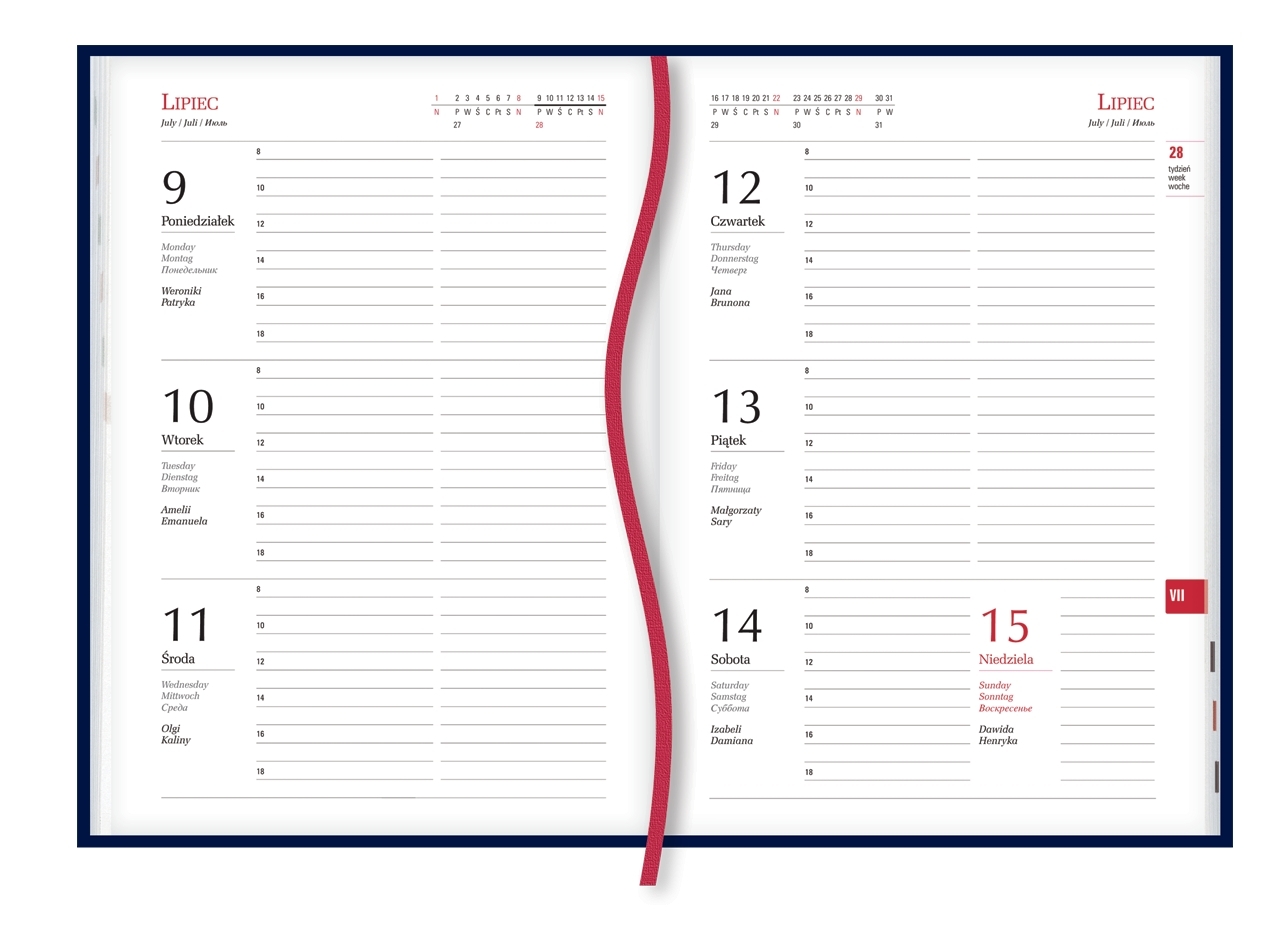 Lipiec
July / Juli / Июль
1 2 3 4 5 6 7 8 9 10 11 12 13 14 15
N P W Ś C Pt S N P W Ś C Pt S N
27 28
8
9
10
Poniedziałek
12
Monday
Montag
14
Понедельник
Weroniki
16
Patryka
18
8
10
10
Wtorek
12
Tuesday
Dienstag
14
Вторник
Amelii
16
Emanuela
18
8
11
10
Środa
12
Wednesday
Mittwoch
14
Среда
Olgi
16
Kaliny
18
16 17 18 19 20 21 22 23 24 25 26 27 28 29 30 31
P W Ś C Pt S N P W Ś C Pt S N P W
29 30 31
Lipiec
July / Juli / Июль
28
tydzień
week
woche
8
12
10
Czwartek
12
Thursday
Donnerstag
14
Четверг
Jana
16
Brunona
18
8
13
10
Piątek
12
Friday
Freitag
14
Пятница
Małgorzaty
16
Sary
18
8
14
10
Sobota
12
Saturday
Samstag
14
Суббота
Izabeli
16
Damiana
18
15
Niedziela
Sunday
Sonntag
Воскресенье
Dawida
Henryka
VII